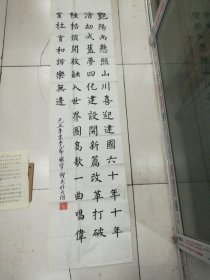 艷陽高懸照山川喜迎建國六十年十年
浩劫成舊夢四化建設開新篇改革打破
種枷鎖開放融入世界圈高歌一曲唱偉
業社會和諧樂無邊
己丑年